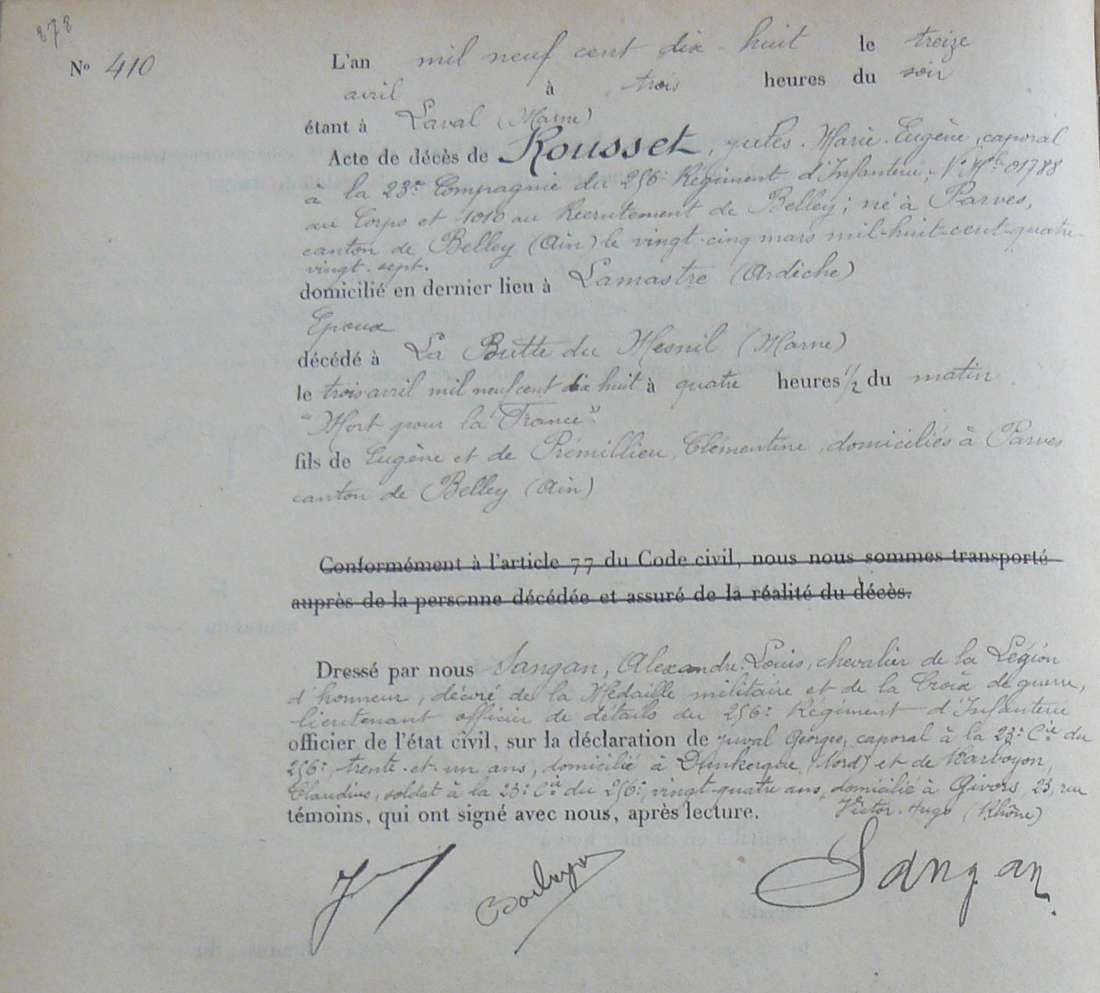 878
N° 410
L'an mil neuf cent dix-huit le treize
avril à trois heures du soir
étant à Laval (Marne)
Acte de décès de Rousset, Jules-Marie-Eugène, caporal
à la 23e Compagnie du 256e Régiment d'Infanterie, N° Mle 01788
au Corps et 1010 au Recrutement de Belley; né à Parves,
canton de Belley (Ain) le vingt-cinq mars mil-huit-cent-quatre-
vingt-sept.
domicilié en dernier lieu à Lamastre (Ardèche)
Epoux
décédé à La Butte du Mesnil (Marne)
le trois avril mil neuf cent dix huit à quatre heures 1/2 du matin
"Mort pour la France".
fils de Eugène et de Prémillieu, Clémentine, domiciliés à Parves
canton de Belley (Ain)
Conformément à l'article 77 du Code civil, nous nous sommes transporté
auprès de la personne décédée et assuré de la réalité du décès.
Dressé par nous Sangan, Alexandre-Louis, chevalier de la Légion
d'honneur, décoré de la Médaille militaire et de la Croix de guerre,
lieutenant officier de détails du 256e Régiment d'Infanterie
officier de l'état civil, sur la déclaration de Georges, caporal à la 23e Cie du
256e, trente-et-un ans, domicilié à Dunkerque, (Nord) et de
Claudius, soldat à la 23e Cie du 256e, vingt-quatre ans, domicilié à Givors, 23, rue
Victor-Hugo (Rhône)
témoins, qui ont signé avec nous, après lecture.
Sangan.